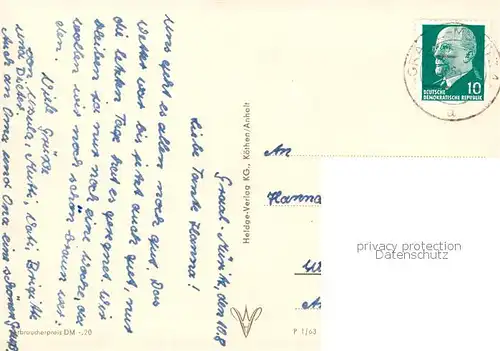 Graal-Müritz, den 10.8
Liebe Tante Hanna!
Uns geht es allen noch gut. Das
Wetter war bis jetzt auch gut, nur
die letzten Tage hat es geregnet. Wir
bleiben ja nur noch eine Woche, da
wollen wir noch schön braun wer-
den.
Viele Grüße
von Ursula, Mutti, Vati, Brigitte
und Dieter.
Auch an Oma und Opa einen schönen Gruß.
Verbraucherpreis DM -,20
Heldge-Verlag KG., Köthen/Anhalt
P 1/63
GRAAL-MÜRITZ
a
DEUTSCHE
DEMOKRATISCHE REPUBLIK
10
An
Hanna
privacy protection
Datenschutz